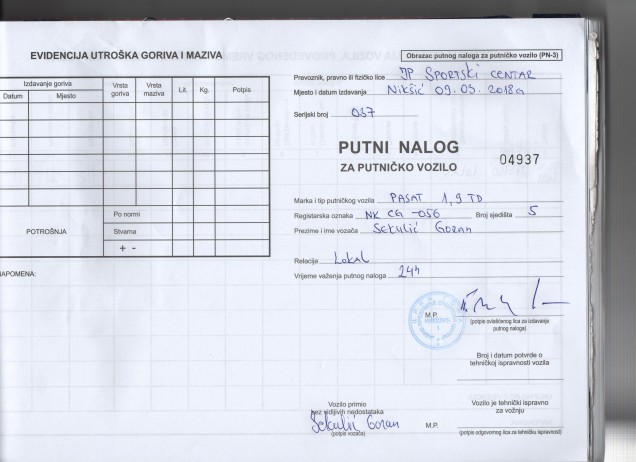 EVIDENCIJA UTROŠKA GORIVA I MAZIVA
Izdavanje goriva
Datum
Mjesto
Vrsta goriva
Vrsta maziva
Lit.
Kg.
Potpis
POTROŠNJA
Po normi
Stvarna
+ -
NAPOMENA:
Obrazac putnog naloga za putničko vozilo (PN-3)
Prevoznik, pravno ili fizičko lice JP SPORTSKI CENTAR
Mjesto i datum izdavanja Nikšić 09.05.2018g
Serijski broj 037
PUTNI NALOG
ZA PUTNIČKO VOZILO
04937
Marka i tip putničkog vozila PASAT 1,9 TD
Registarska oznaka NK CG-056 Broj sjedišta 5
Prezime i ime vozača Sekulić Goran
Relacija Lokal
Vrijeme važenja putnog naloga 24h
M.P.
(potpis ovlašćenog lica za izdavanje
putnog naloga)
Broj i datum potvrde o
tehničkoj ispravnosti vozila
Vozilo primio
bez vidljivih nedostataka
Sekulić Goran
(potpis vozača)
M.P.
Vozilo je tehnički ispravno
za vožnju
(potpis odgovornog lica za tehničku ispravnost)